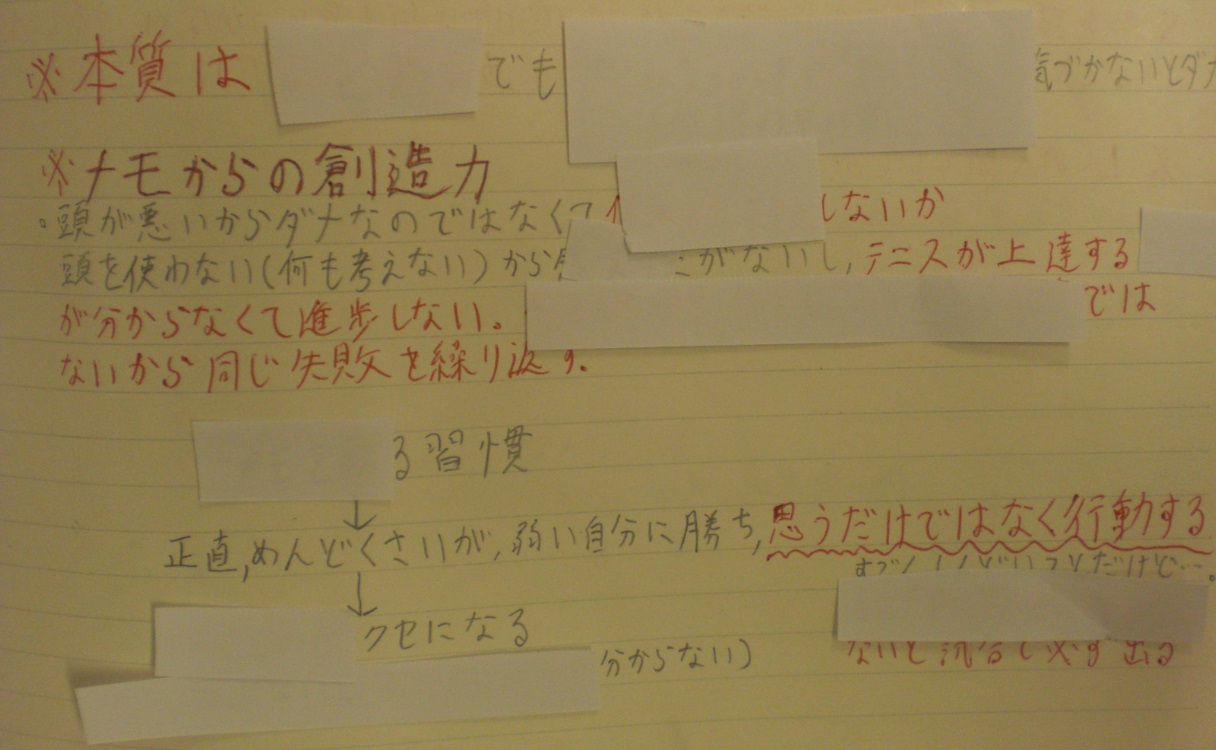 ※本質は でも 気づかないとダメ
※メモからの創造力
・頭が悪いからダメなのではなくて しないか
頭を使わない(何も考えない)から がないし,テニスが上達する
が分からなくて進歩しない。 では
ないから同じ失敗を繰り返す。
る習慣
↓
正直,めんどくさいが,弱い自分に勝ち,思うだけではなく行動する
だけど…。
↓
クセになる
分からない)
ないと 必ず出る